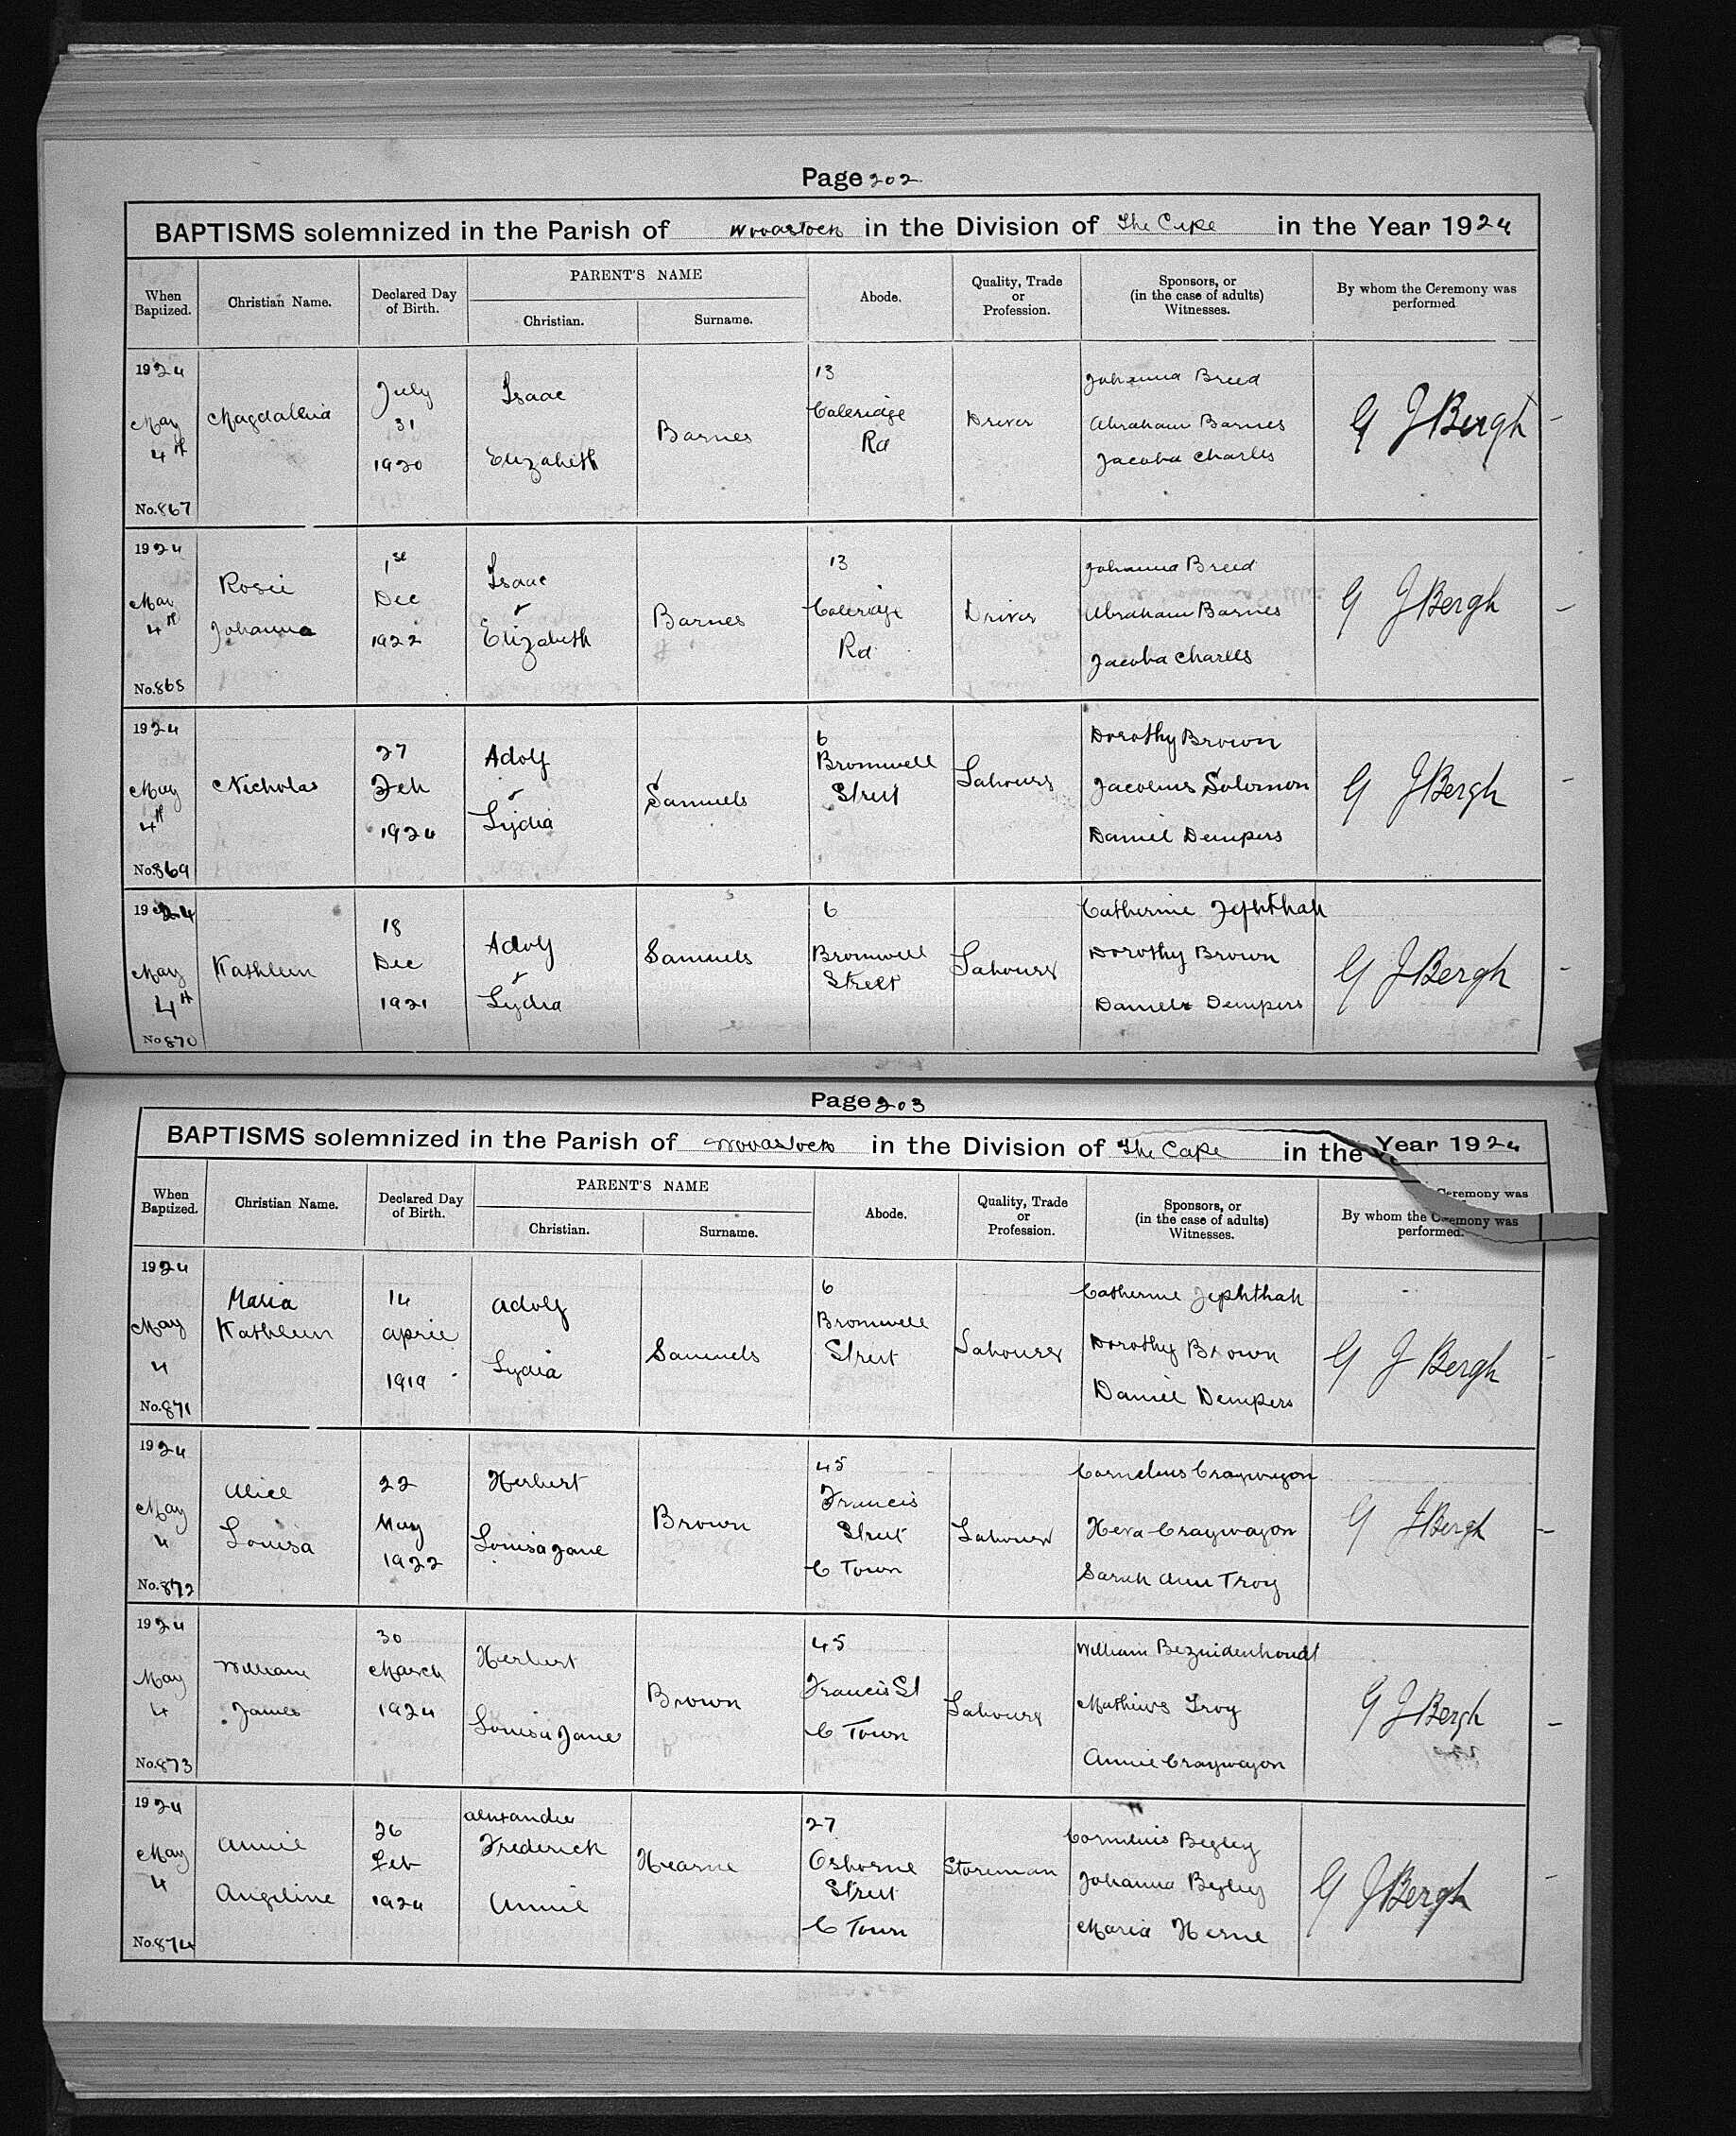 Page 202
BAPTISMS solemnized in the Parish of Woodstock in the Division of The Cape in the Year 1924
When Baptized. Christian Name. Declared Day of Birth. PARENT'S NAME Christian. Surname. Abode. Quality, Trade or Profession. Sponsors, or (in the case of adults) Witnesses. By whom the Ceremony was performed
1924 May 4th No. 867
Magdalena
July 31 1920
Isaac Elizabeth
Barnes
13 Coleridge Rd
Driver
Johanna Breed
Abraham Barnes
Jacoba Charles
G J Bergh
1924 May 4th No. 868
Rosie Johanna
1st Dec 1922
Isaac + Elizabeth
Barnes
13 Coleridge Rd
Driver
Johanna Breed
Abraham Barnes
Jacoba Charles
G J Bergh
1924 May 4th No. 869
Nicholas
27 Feb 1924
Adolf + Lydia
Samuels
6 Bromwell Street
Labourer
Dorothy Brown
Jacobus Solomon
Daniel Dempers
G J Bergh
1924 May 4th No 870
Kathleen
18 Dec 1921
Adolf + Lydia
Samuels
6 Bromwell Street
Labourer
Catherine Jephthah
Dorothy Brown
Daniel Dempers
G J Bergh
Page 203
BAPTISMS solemnized in the Parish of Woodstock in the Division of The Cape in the Year 1924
When Baptized. Christian Name. Declared Day of Birth. PARENT'S NAME Christian. Surname. Abode. Quality, Trade or Profession. Sponsors, or (in the case of adults) Witnesses. By whom the Ceremony was performed.
Ceremony was
1924 May 4 No. 871
Maria Kathleen
14 April 1919
Adolf Lydia
Samuels
6 Bromwell Street
Labourer
Catherine Jephthah
Dorothy Brown
Daniel Dempers
G J Bergh
1924 May 4 No. 872
Alice Louisa
22 May 1922
Herbert Louisa Jane
Brown
45 Francis Street C Town
Labourer
Cornelius Craywagon
Hera Craywagon
Sarah Ann Troy
G J Bergh
1924 May 4 No. 873
William James
30 March 1924
Herbert Louisa Jane
Brown
45 Francis St C Town
Labourer
William Bezuidenhoudt
Mathews Troy
Annie Craywagon
G J Bergh
1924 May 4 No. 874
Annie Angeline
26 Feb 1924
Alexander Frederick Annie
Hearne
27 Osborne Street C Town
Storeman
Cornelius Begley
Johanna Begley
Maria Herne
G J Bergh